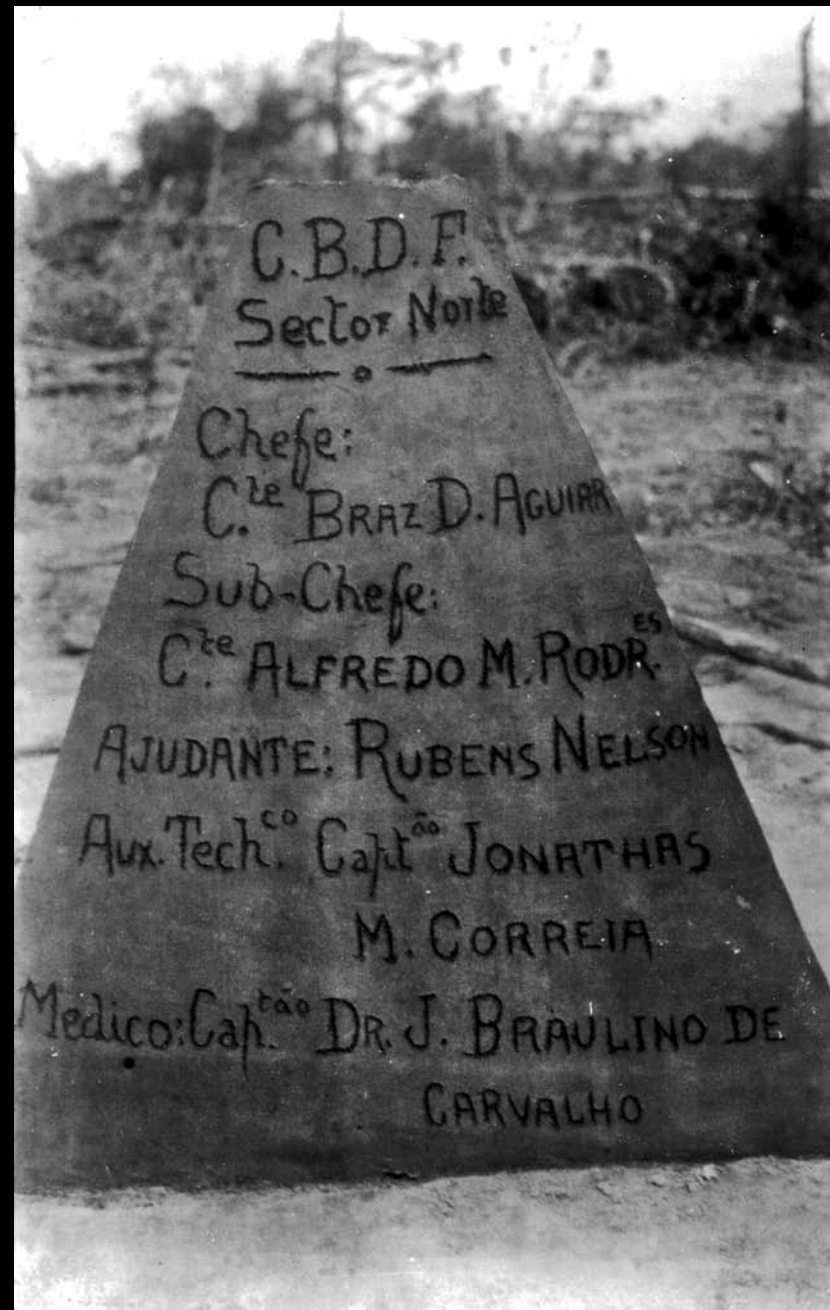 C.B.D.F.
Sector Norte
Chefe:
C.te BRAZ D. AGUIAR
Sub-Chefe:
C.te ALFREDO M. RODR.ES
AJUDANTE: RUBENS NELSON
Aux. Tech.co Captão JONATHAS
M. CORREIA
Medico: Cap.tão DR. J. BRAULINO DE
CARVALHO